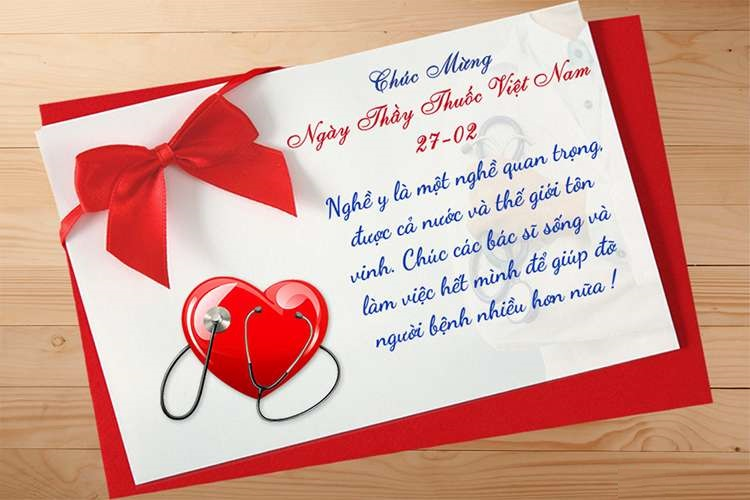 Chúc Mừng
Ngày Thầy Thuốc Việt Nam
27-02
Nghề y là một nghề quan trọng,
được cả nước và thế giới tôn
vinh. Chúc các bác sĩ sống và
làm việc hết mình để giúp đỡ
người bệnh nhiều hơn nữa !